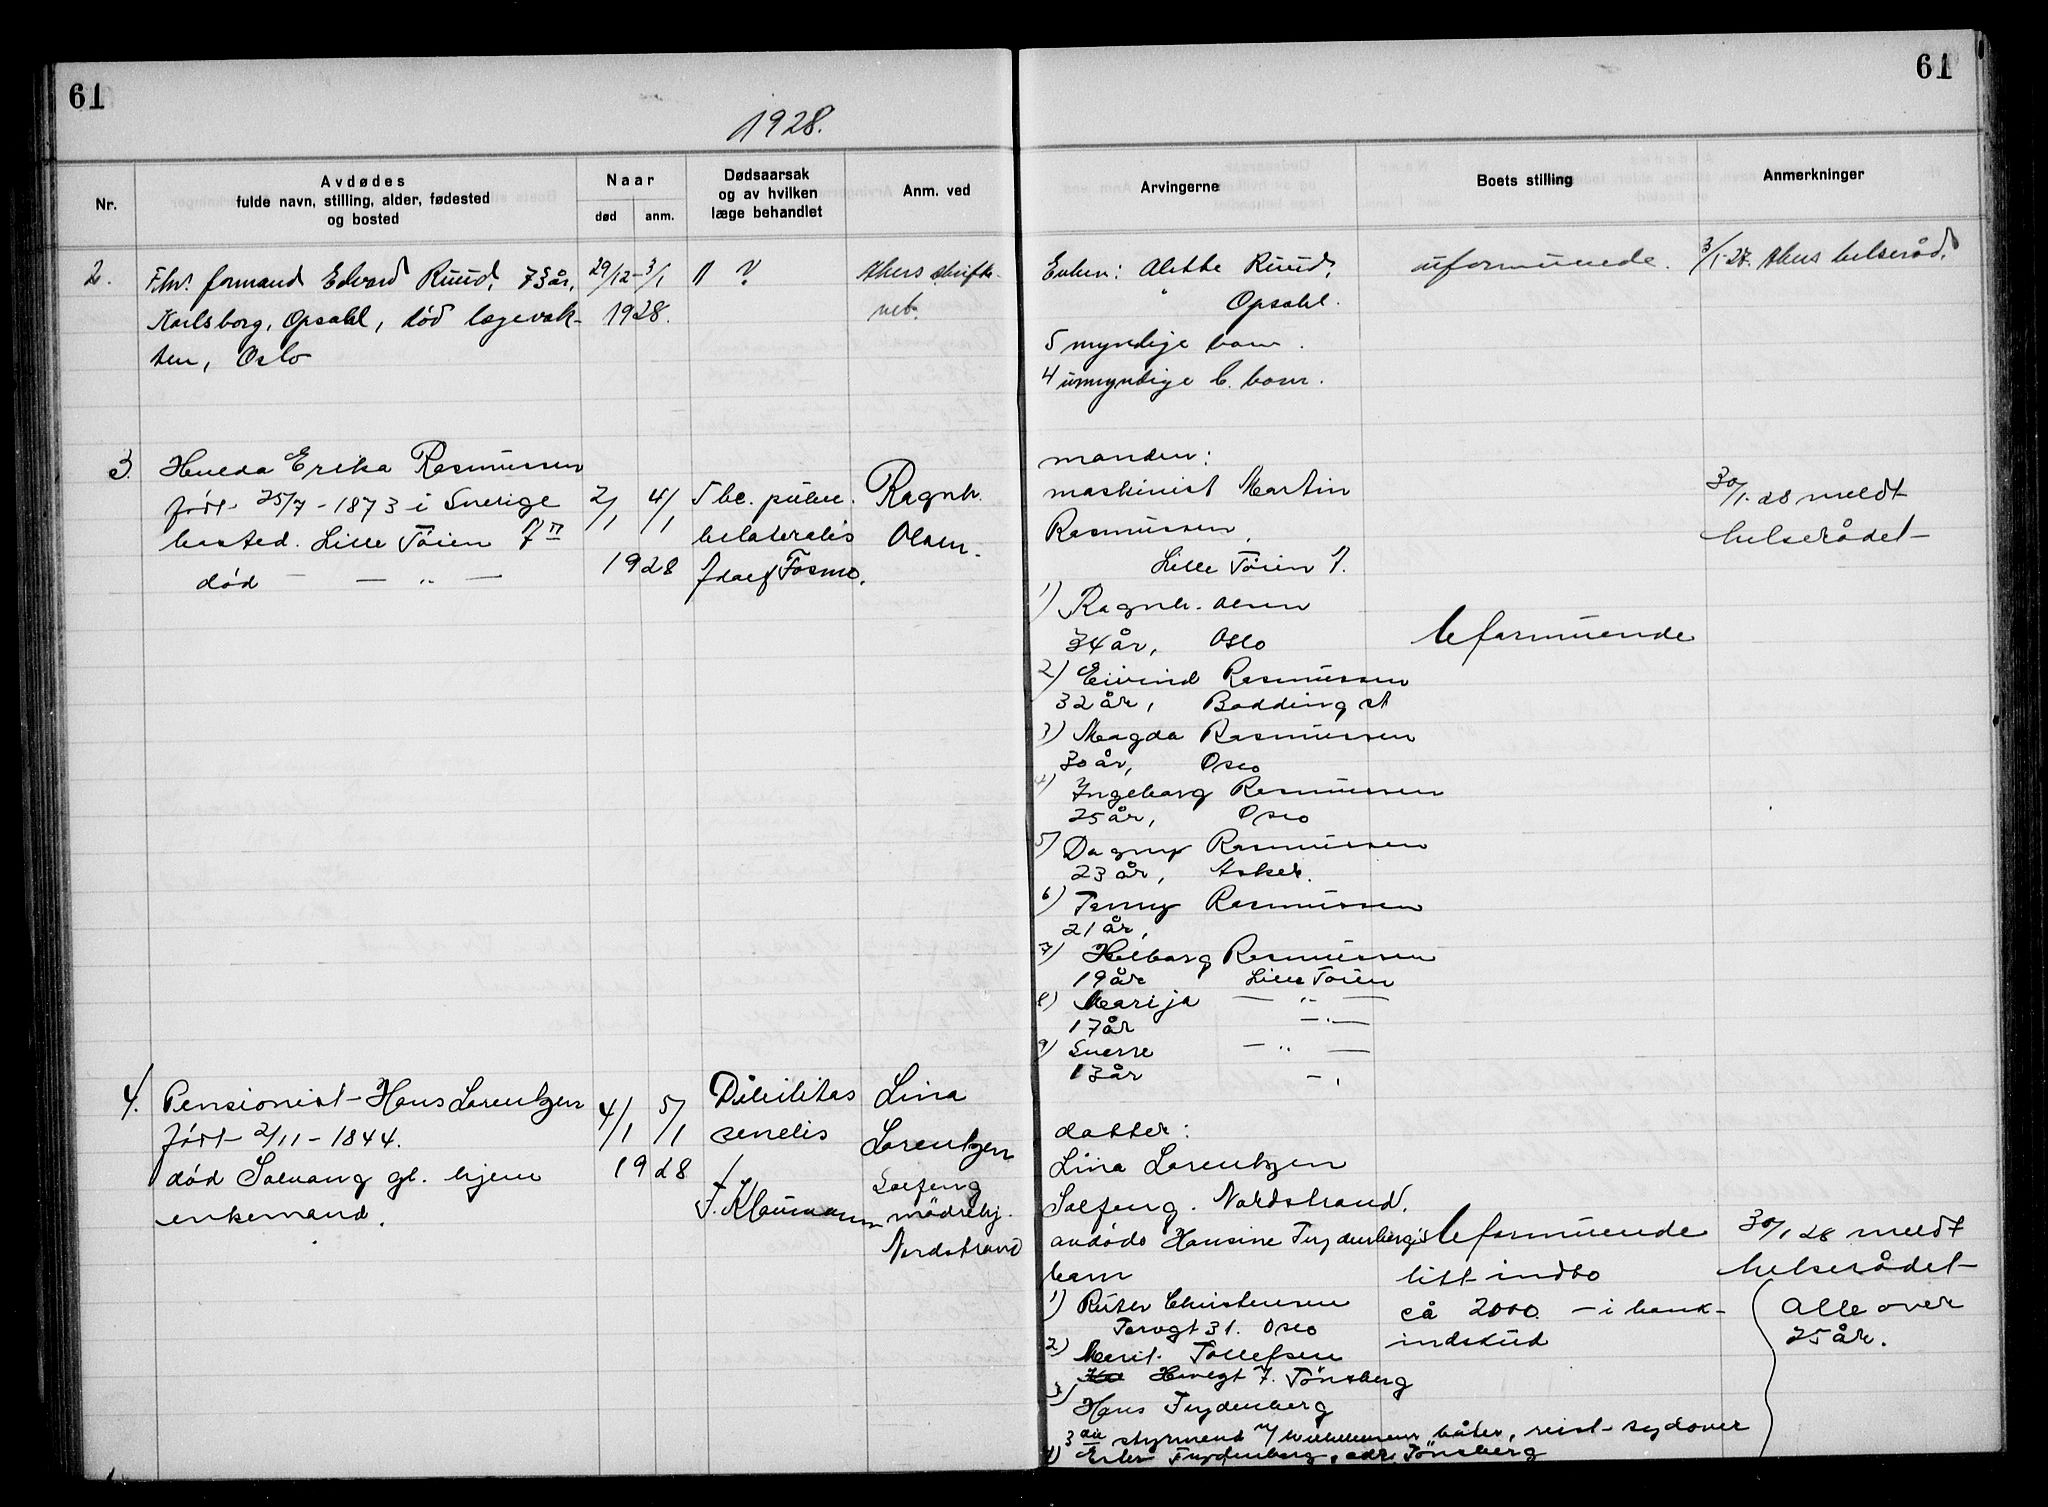 61
61
1928.
Nr.
Avdødes
fulde navn, stilling, alder, fødested
og bosted
Naar
død
anm.
Dødsaarsak
og av hvilken
læge behandlet
Anm. ved
Arvingerne
Boets stilling
Anmerkninger
2.
F.hv. formand Edvard Ruud, 73 år,
Karlsborg, Opsahl, død lægevak-
ten, Oslo
29/12 - 3/1
1928.
?
Akers skifte-
ret.
Enken: Alette Ruud,
Opsahl.
5 myndige barn.
4 umyndige b. barn.
uformuende.
3/1 28. Akers helseråd.
3.
Hulda Erika Rasmussen
født 25/7 - 1873 i Sverige
bosted. Lille Töien 7
død — „ —
2/1 4/1
1928
Tbc. pulm.
bilateralis
Fosmo.
Ragnh.
Olsen.
manden:
maskinist Martin
Rasmussen,
Lille Töien 7.
1) Ragnh. Olsen
34 år, Oslo
2) Eivind Rasmussen
32 år, Badding st
3) Magda Rasmussen
30 år, Oslo
4) Ingeborg Rasmussen
25 år, Oslo
5) Dagny Rasmussen
23 år, Asker.
6) Jenny Rasmussen
21 år,
7) Helborg Rasmussen
19 år Lille Töien
8) Marija — „ —
17 år — „ —
9) Sverre — „ —
13 år — „
Uformuende
30/1. 28 meldt
helserådet
4.
Pensionist Hans Lorentzen
født 2/11 - 1844.
død Solvang gl. hjem
enkemand.
4/1 5/1
1928
Debilitas
senilis
F. Klaumann
Lina
Lorentzen
Solfeng
mödrehj.
Nordstrand
datter:
Lina Lorentzen
Solfeng. Nordstrand.
avdöde Hansine Frydenbergs
barn
1) Ruter Christensen
Torvgt 31. Oslo
2) Marit. Tollefsen
7. Tönsberg
3) Hans Frydenberg
3die styrmand m/ Wilhelmsens båter, reist sydover
4) Frydenberg, adr. Tönsberg
Uformuende
litt indbo
cå 2000. — i bank-
indskud
30/1 28 meldt
helserådet
Alle over
25 år.